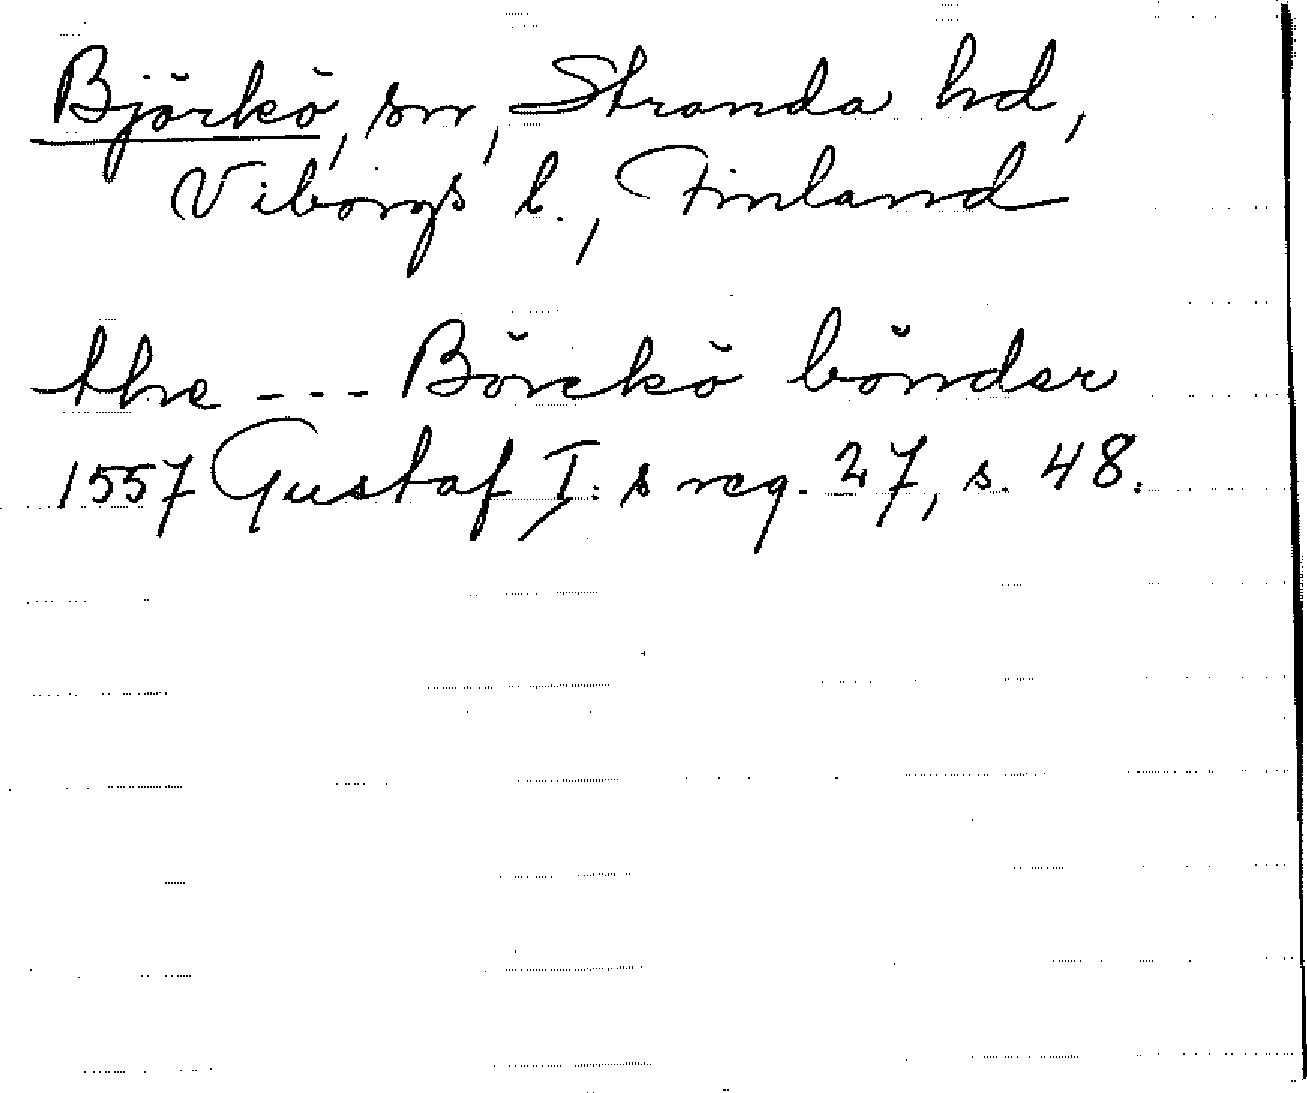 Björkö, sn, Stranda hd,
Viborgs l., Finland
the --- Börckö bönder
1557 Gustaf I:s reg. 27, s. 48.